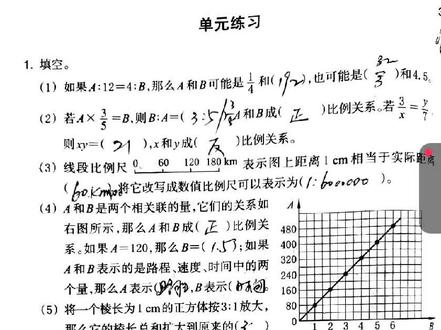 单元练习
1. 填空。
(1) 如果A:12=4:B,那么A和B可能是1/4和(192),也可能是(32/3)和4.5。
(2) 若A×3/5=B,则B:A=(3:5),A和B成(正)比例关系。若3/x=y/7,
则xy=(21),x和y成(反)比例关系。
(3) 线段比例尺 0 60 120 180 km 表示图上距离1 cm相当于实际距离
(60km),将它改写成数值比例尺可以表示为(1:6000000)。
(4) A和B是两个相关联的量,它们的关系如
右图所示,那么A和B成(正)比例关
系。如果A=120,那么B=(1.5);如果
A和B表示的是路程、速度、时间中的两
个量,那么A表示(路程),B表示(时间)
(5) 将一个棱长为1 cm的正方体按3:1放大,
那么它的棱长总和扩大到原来的(3)
A
480
400
320
240
160
80
0 1 2 3 4 5 6 B